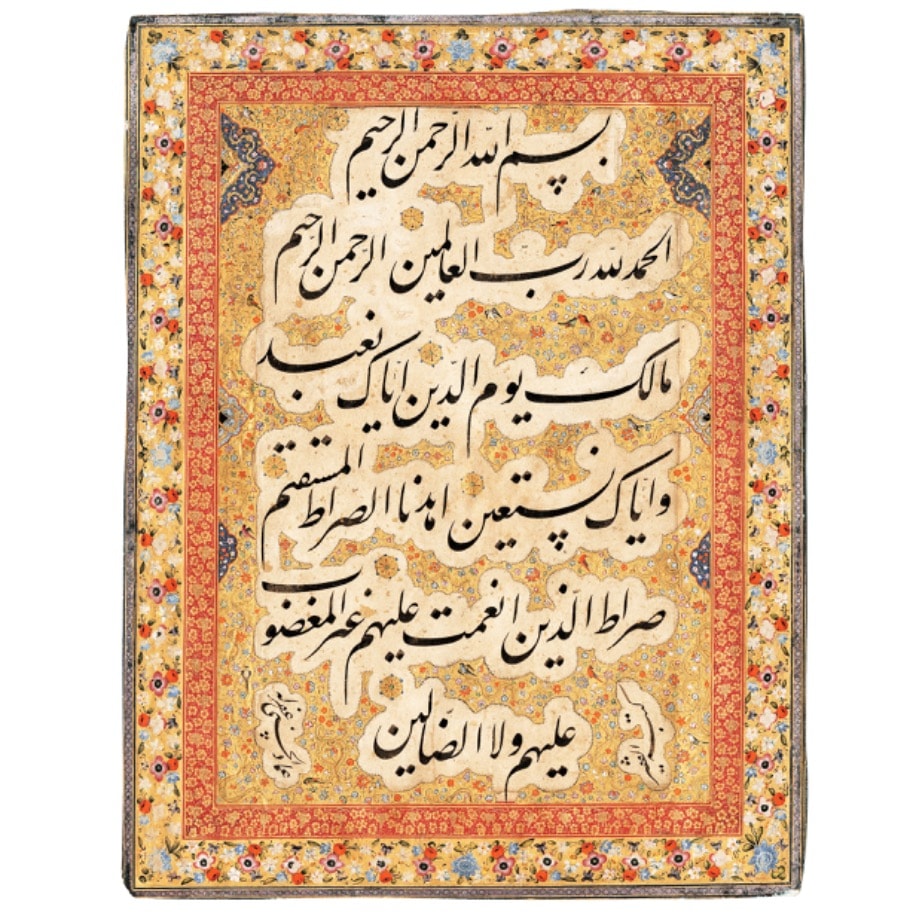 بسم الله الرّحمن الرحیم
الحمد لله رب العالمین الرحمن الرحیم
مالک یوم الدّین ایّاک نعبد
و ایّاک نستعین اهدنا الصّراط المستقیم
صراط الّذین انعمت علیهم غیر المغضوب
علیهم ولا الضّالین